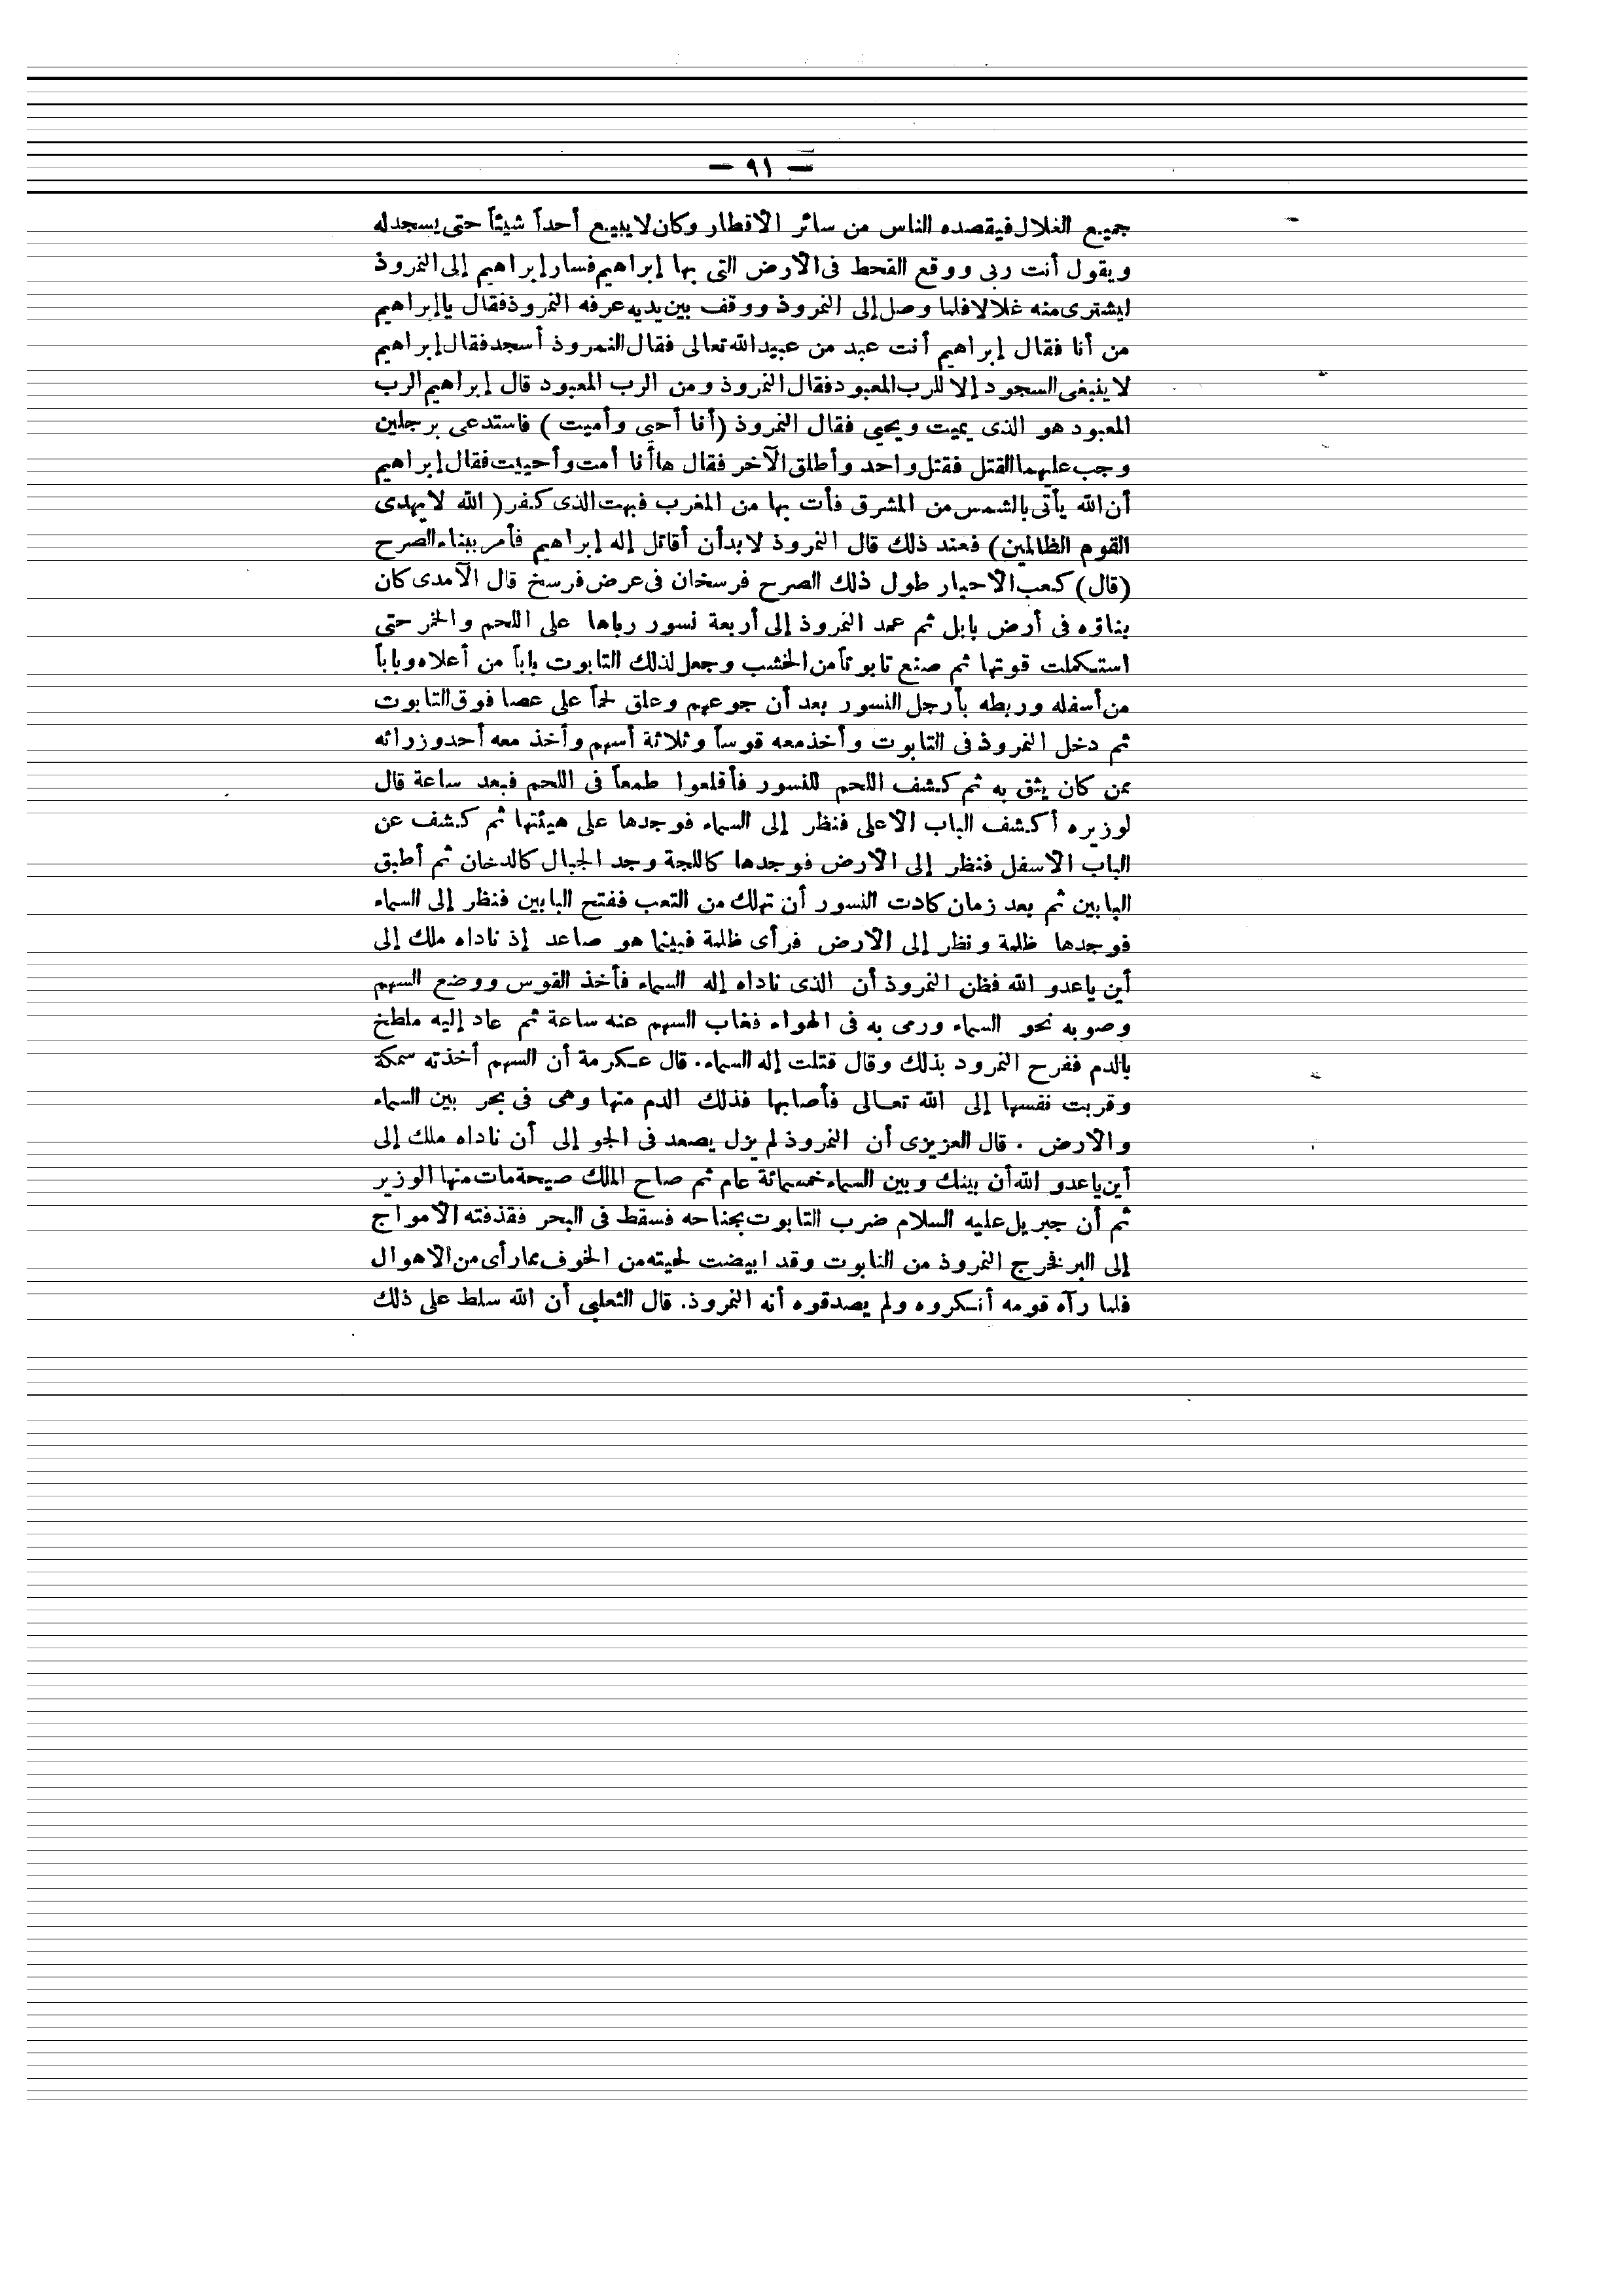 — ٩١ —
جميع الغلال فيقصده الناس من سائر الاقطار وكان لا يبيع أحداً شيئاً حتى يسجد له
ويقول أنت ربى ووقع القحط فى الارض التى بها إبراهيم فسار إبراهيم إلى النمروذ
ليشترى منه غلالا فلما وصل إلى النمروذ ووقف بين يديه عرفه النمروذ فقال يا إبراهيم
من أنا فقال إبراهيم أنت عبد من عبيد الله تعالى فقال النمروذ أسجد فقال إبراهيم
لا ينبغى السجود إلا للرب المعبود فقال النمروذ ومن الرب المعبود قال إبراهيم الرب
المعبود هو الذى يميت ويحيى فقال النمروذ (أنا أحيى وأميت) فاستدعى برجلين
وجب عليهما القتل فقتل واحد وأطلق الآخر فقال ها أنا أمت وأحييت فقال إبراهيم
أن الله يأتى بالشمس من المشرق فأت بها من المغرب فبهت الذى كفر (الله لا يهدى
القوم الظالمين) فعند ذلك قال النمروذ لا بد أن أقاتل إله إبراهيم فأمر ببناء الصرح
(قال) كعب الاحبار طول ذلك الصرح فرسخان فى عرض فرسخ قال الآمدى كان
بناؤه فى أرض بابل ثم عمد النمروذ إلى أربعة نسور رباها على اللحم والخمر حتى
استكملت قوتها ثم صنع تابوتاً من الخشب وجعل لذلك التابوت باباً من أعلاه وباباً
من أسفله وربطه بأرجل النسور بعد أن جوعهم وعلق لحماً على عصا فوق التابوت
ثم دخل النمروذ فى التابوت وأخذ معه قوساً وثلاثة أسهم وأخذ معه أحد وزرائه
ممن كان يثق به ثم كشف اللحم للنسور فأقلعوا طمعاً فى اللحم فبعد ساعة قال
لوزيره أكشف الباب الاعلى فنظر إلى السماء فوجدها على هيئتها ثم كشف عن
الباب الاسفل فنظر إلى الارض فوجدها كاللجة وجد الجبال كالدخان ثم أطبق
البابين ثم بعد زمان كادت النسور أن تهلك من التعب ففتح البابين فنظر إلى السماء
فوجدها ظلمة ونظر إلى الارض فرأى ظلمة فبينما هو صاعد إذ ناداه ملك إلى
أين يا عدو الله فظن النمروذ أن الذى ناداه إله السماء فأخذ القوس ووضع السهم
وصوبه نحو السماء ورمى به فى الهواء فغاب السهم عنه ساعة ثم عاد إليه ملطخ
بالدم ففرح النمرود بذلك وقال قتلت إله السماء. قال عكرمة أن السهم أخذته سمكة
وقربت نفسها إلى الله تعالى فأصابها فذلك الدم منها وهى فى بحر بين السماء
والارض . قال العزيزى أن النمروذ لم يزل يصعد فى الجو إلى أن ناداه ملك إلى
أين يا عدو الله أن بينك وبين السماء خمسمائة عام ثم صاح الملك صيحة مات منها الوزير
ثم أن جبريل عليه السلام ضرب التابوت بجناحه فسقط فى البحر فقذفته الامواج
إلى البر فخرج النمروذ من التابوت وقد ابيضت لحيته من الخوف مما رأى من الاهوال
فلما رآه قومه أنكروه ولم يصدقوه أنه النمروذ. قال الثعلبى أن الله سلط على ذلك